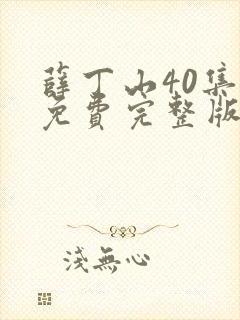 薛丁山40集
免費完整版
淺無心